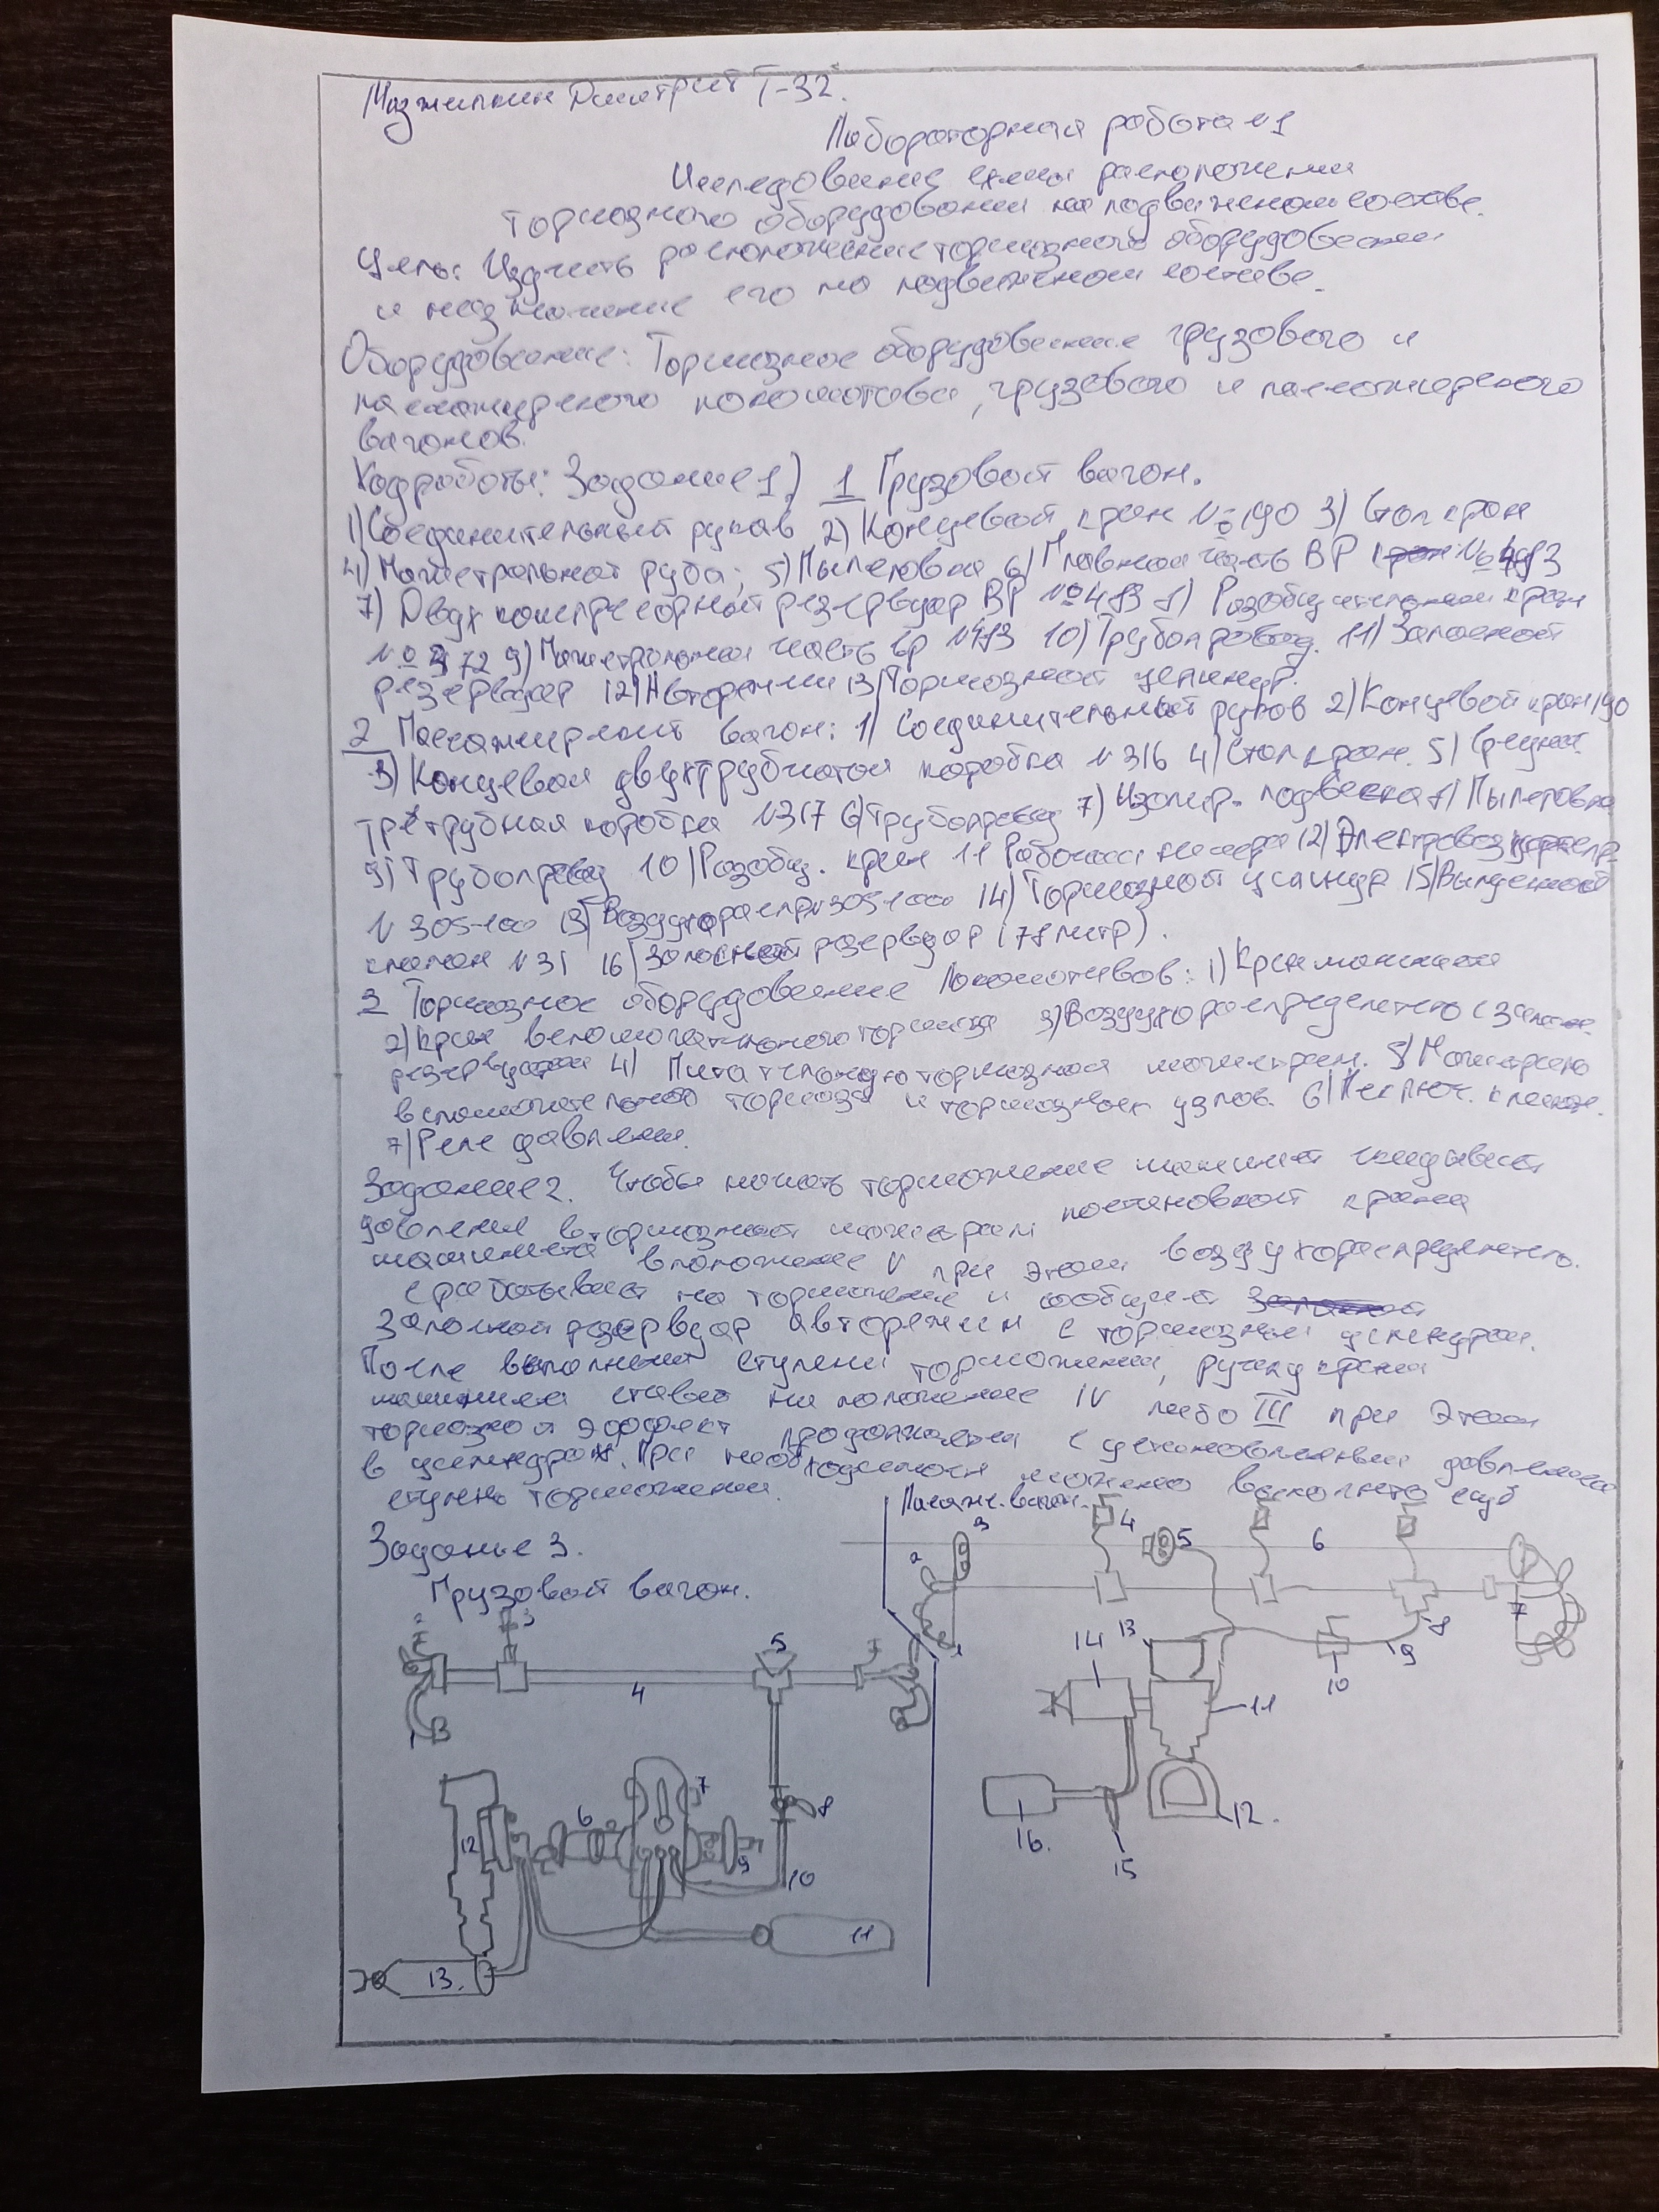 Дмитрий Т-32.
Лабораторная работа №1
Исследование схемы расположения
тормозного оборудования на подвижном составе.
Цель: Изучить расположение тормозного оборудования
и назначение его на подвижном составе.
Оборудование: Тормозное оборудование грузового и
пассажирского локомотива, грузового и пассажирского
вагонов.
Ход работы: Задание 1.) 1 Грузовой вагон.
1) Соединительный рукав 2) Концевой кран №190 3) Стоп кран
4) Магистральная труба; 5) Пылеловка 6) Главная часть ВР №483
7) Двухкамерный резервуар ВР №483 8) Разобщительный кран
№372 9) Магистральная часть вр №483 10) Трубопровод. 11) Запасной
резервуар 12) Авторежим 13) Тормозной цилиндр.
2 Пассажирский вагон: 1) Соединительный рукав 2) Концевой кран 190
3) Концевая двухтрубчатая коробка №316 4) Стоп кран. 5) Средняя
трёхтрубная коробка №317 6) Трубопровод 7) Изолир. подвеска 8) Пылеловка
9) Трубопровод 10) Разобщ. кран 11 Рабочая камера 12)
№305-100 13) №305-1000 14) Тормозной цилиндр 15)
клапан №31 16) Запасный резервуар (78 литр).
3 Тормозное оборудование Локомотивов: 1) Кран машиниста
2) Кран вспомогательного тормоза 3) Воздухораспределитель с запасн.
резервуаром 4) Питательную тормозная магистрали. 5) Магистраль
вспомогательной тормоза и тормозных узлов. 6) клапан.
7) Реле давления.
Задание 2. Чтобы начать торможение машинист
давления в тормозной магистрали постановкой крана
машиниста в положение V при этом воздухораспределитель.
срабатывает на торможение и сообщает
Запасной резервуар авторежим с тормозным цилиндром.
После выполнения ступени торможения, ручку крана
машиниста ставят на положение IV либо III при этом
тормозной эффект продолжается с установленным давлением
в цилиндрах. При необходимости можно
ступень торможения.
Задание 3.
Грузовой вагон.
2
3
5
4
1
7
6
8
12
9
10
11
13.
Пассаж. вагон.
3
4
5
6
2
7
1
13
14
8
9
10
11
12.
16.
15